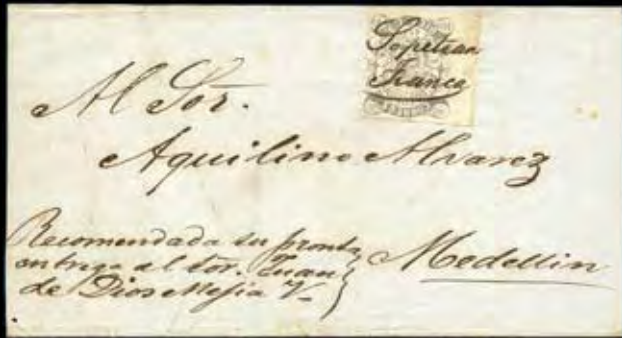 Sopetran
Franca
Al Sor.
Aquilino Alvarez
Recomendada su pronta
entrega al Sor. Juan
de Dios Mejia V.
Medellin